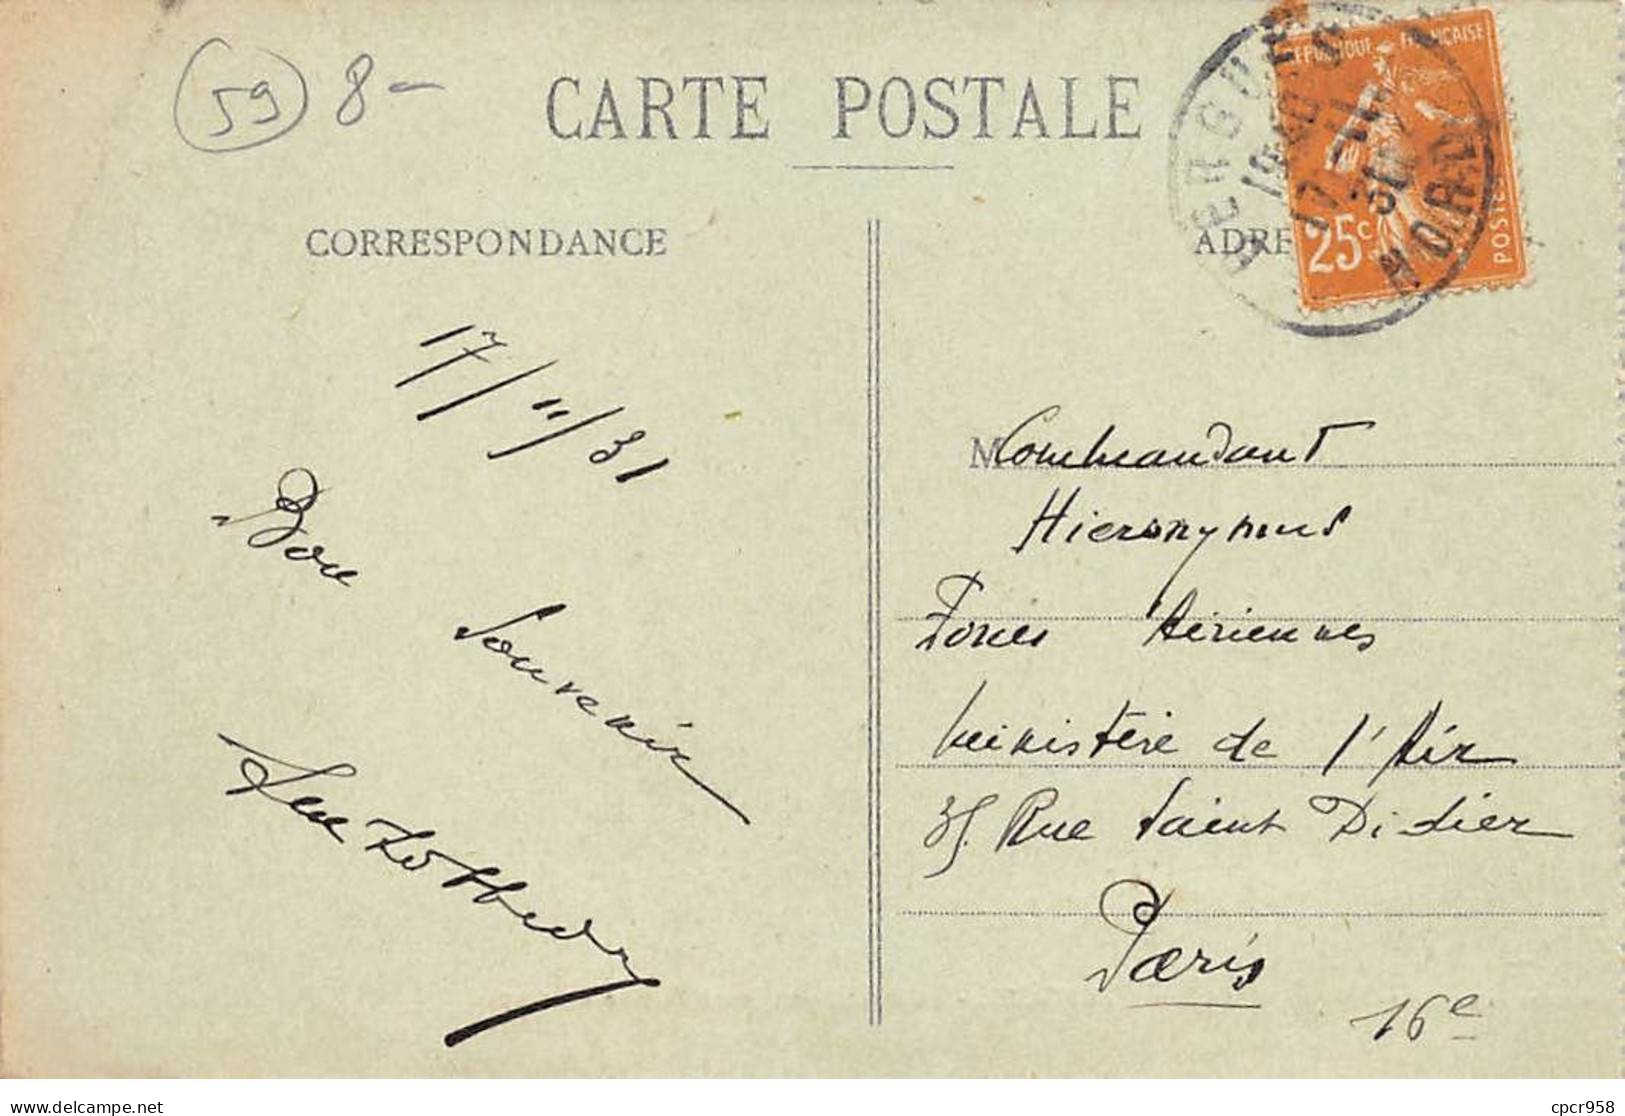 59 8 -
CARTE POSTALE
RÉPUBLIQUE FRANÇAISE
25c
POSTES
BERGUES
NORD
CORRESPONDANCE
ADRE
17/11/31
Bon
Souvenir
M Commandant
Hieronymus
Forces Aériennes
Ministère de l'Air
35 Rue Saint Didier
Paris
16e
delcampe.net
cpcr958